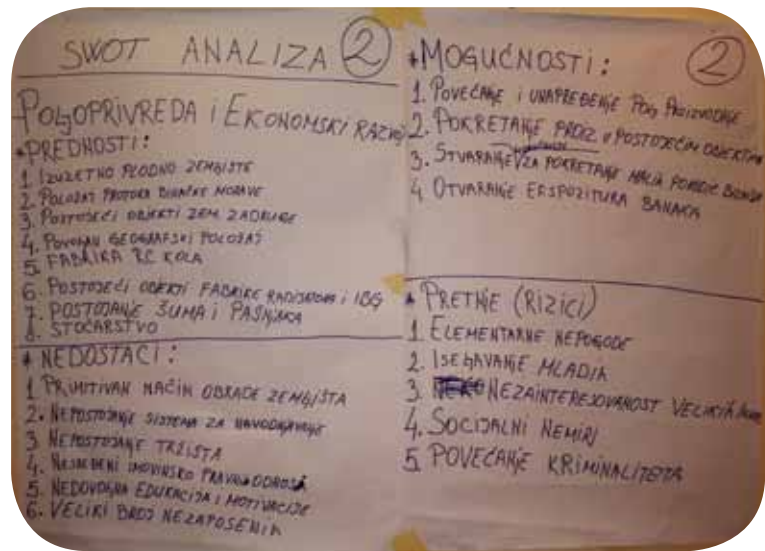 SWOT ANALIZA 2
POLJOPRIVREDA i EKONOMSKI RAZVOJ
*PREDNOSTI:
1. IZUZETNO PLODNO ZEMLJIŠTE
2. POLOŽAJ PROTOKA BINAČKE MORAVE
3. POSTOJEĆI OBJEKTI ZEM. ZADRUGE
4. POVOLJAN GEOGRAFSKI POLOŽAJ
5. FABRIKA KOLA
6. POSTOJEĆI OBJEKTI FABRIKE i IBG
7. POSTOJANJE ŠUMA i PAŠNJAKA
8. STOČARSTVO
* NEDOSTACI:
1 PRIMITIVAN NAČIN OBRADE ZEMLJIŠTA
2. NEPOSTOJANJE SISTEMA ZA NAVODNJAVANJE
3 NEPOSTOJANJE TRŽIŠTA
4. IMOVINSKO PRAVNI ODNOSI
5. NEDOVOLJNA EDUKACIJA i MOTIVACIJE
6. VELIKI BROJ NEZAPOSENIH
*MOGUĆNOSTI: 2
1. POVEĆANJE i UNAPREĐENJE POLJ PROIZVODNJE
2. POKRETANJE PROIZ. U POSTOJEĆIM OBJEKTIMA
3. STVARANJE ZA POKRETANJE MALIH PORODIC BIZNISA
4. OTVARANJE EKSPOZITURA BANAKA
* PRETNJE (RIZICI)
1. ELEMENTARNE NEPOGODE
2. ISELJAVANJE MLADIH
3. NEZAINTERESOVANOST VELIKIH
4. SOCIJALNI NEMIRI
5. POVEĆANJE KRIMINALITETA